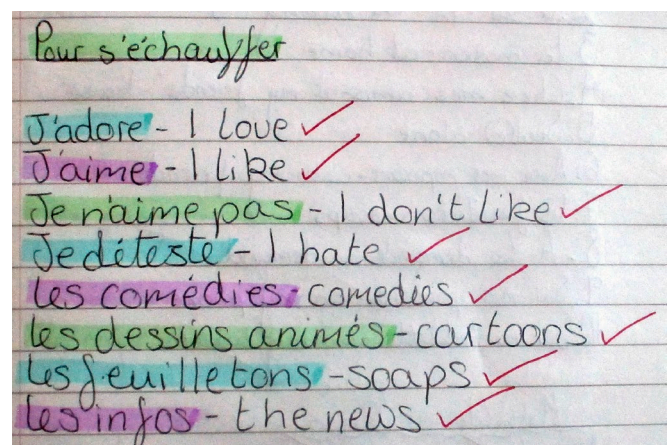 Pour s'échauffer
J'adore - I love
J'aime - I like
Je n'aime pas - I don't like
Je déteste - I hate
les comédies - comedies
les dessins animés - cartoons
les feuilletons - soaps
les infos - the news